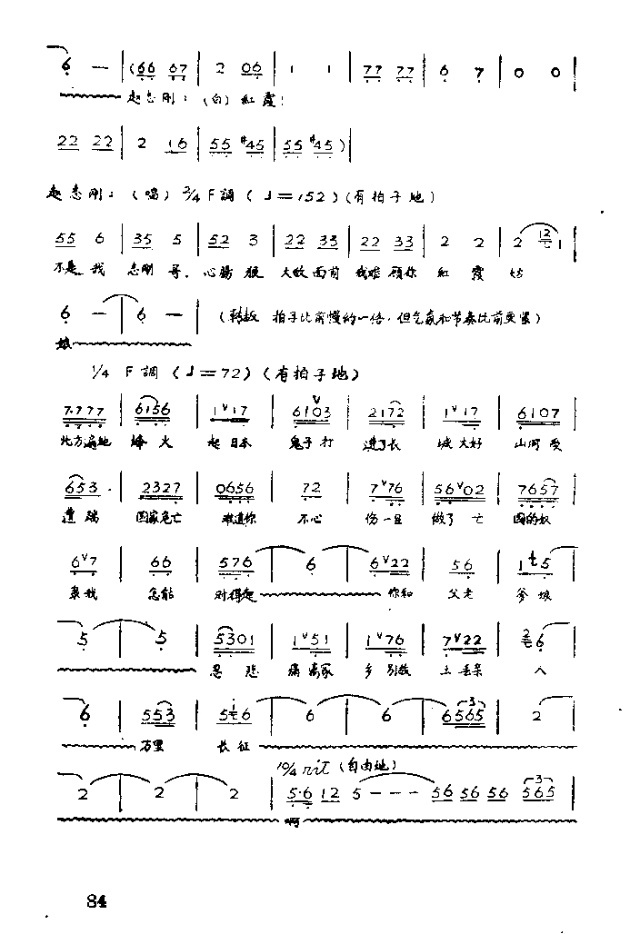 6 — | (66 67 | 2 06 | 1 1 | 77 77 | 6 7 | 0 0 |
赵志刚：（白）紅霞！
22 22 | 2 16 | 55 #45 | 55 #45) |
赵志刚：（唱）2/4 F調（♩=152）(有拍子地)
55 6 | 35 5 | 52 3 | 22 33 | 22 33 | 2 2 | 2 12 1
不是 我 志刚 哥，心腸狠 大敌面前 我难顾你 紅 霞 姑
6 — | 6 — | （转板 拍子比前慢的一倍，但气氛和节奏比前要紧）
娘
1/4 F調（♩=72）(有拍子地)
7.777 | 6156 | 1∨17 | 6103 | 2172 | 1∨17 | 6107
北方遍地 烽火 起日本 鬼子打 进了长 城大好 山河受
653. | 2327 | 0656 | 72 | 7∨76 | 56∨02 | 7657
遭踏 国家危亡 难道你 不心 伤一旦 做了 亡 国的奴
6∨7 | 66 | 576 | 6 | 6∨22 | 56 | 1 5
隶我 怎能 对得起 你和 父老 爹娘
5 | 5 | 5301 | 1∨51 | 1∨76 | 7∨22 | 2 6
忍悲 痛离家 乡别故 土丢亲 人
6 | 553 | 5 6 | 6 | 6 | 6565 | 2
万里 长征
10/4 rit（自由地）
2 | 2 | 2 | 5·6 12 5 — — — 56 56 56 565
啊
84